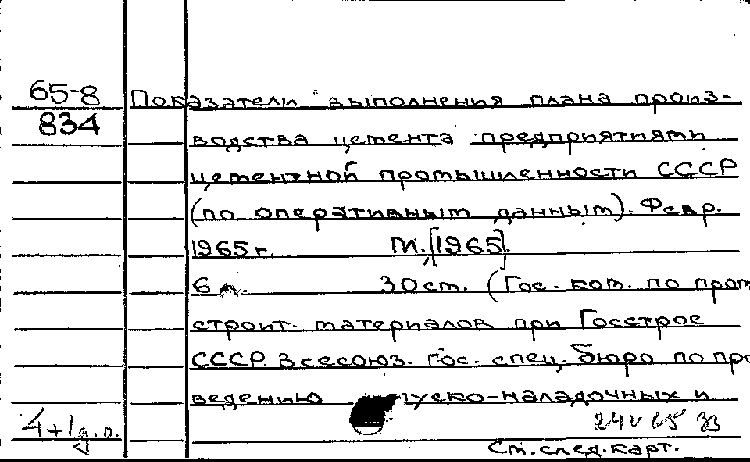 65-8
834
Показатели выполнения плана произ-
водства цемента предприятиями
цементной промышленности СССР
(по оперативным данным). Февр.
1965 г. М., [1965].
6 л. 30 см. (Гос. ком. по пром
строит. материалов при Госстрое
СССР. Всесоюз. гос. спец. бюро по про
ведению пуско-наладочных и
4+1д.о.
24 V 65
См. след. карт.